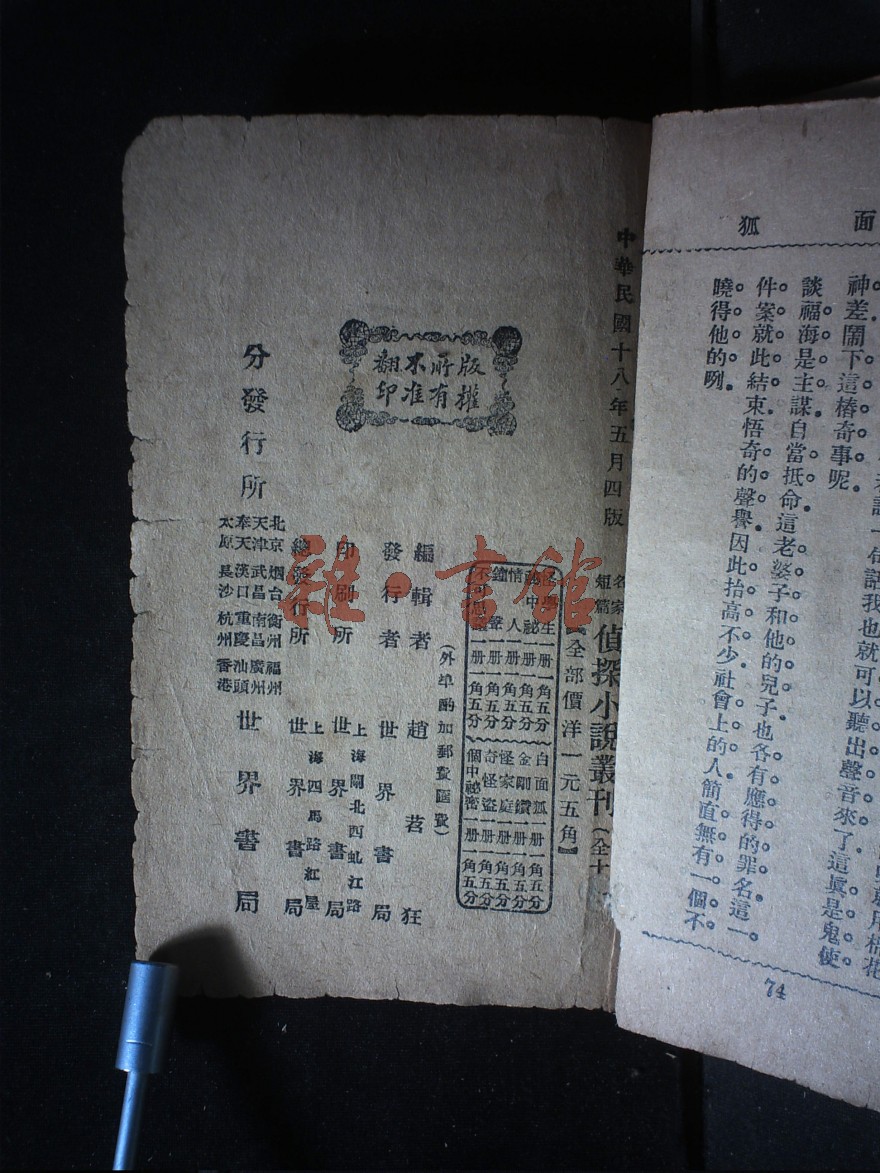 面狐
說一句話我也就可以聽出聲音來了。這眞是鬼使
神差。鬧下這樁奇事呢。
談福海是主謀。自當抵命。這老婆子和他的兒子。也各有應得的罪名。這一
件案就此結束。悟奇的聲譽。因此抬高不少。社會上的人。簡直無有一個不
曉得他的咧。
74
中華民國十八年五月四版
名家短篇偵探小說叢刊(全十
全部價洋一元五角】
怪學生一册一角五分
中祕一册一角五分
情人一册一角五分
鐘聲一册一角五分
不可思議一册一角五分
白面狐一册一角五分
金剛鑽一册一角五分
怪家庭一册一角五分
奇怪盜一册一角五分
個中祕密一册一角五分
(外埠酌加郵費匯費)
編輯者 趙苕狂
發行者 世界書局
印刷所 上海閘北西虬江路 世界書局
總發行所 上海四馬路紅屋 世界書局
分發行所 北京 烟台 衢州 福州 天津 武昌 南昌 廣州 奉天 漢口 重慶 汕頭 太原 長沙 杭州 香港 世界書局
版權所有
不准翻印
雜·書館